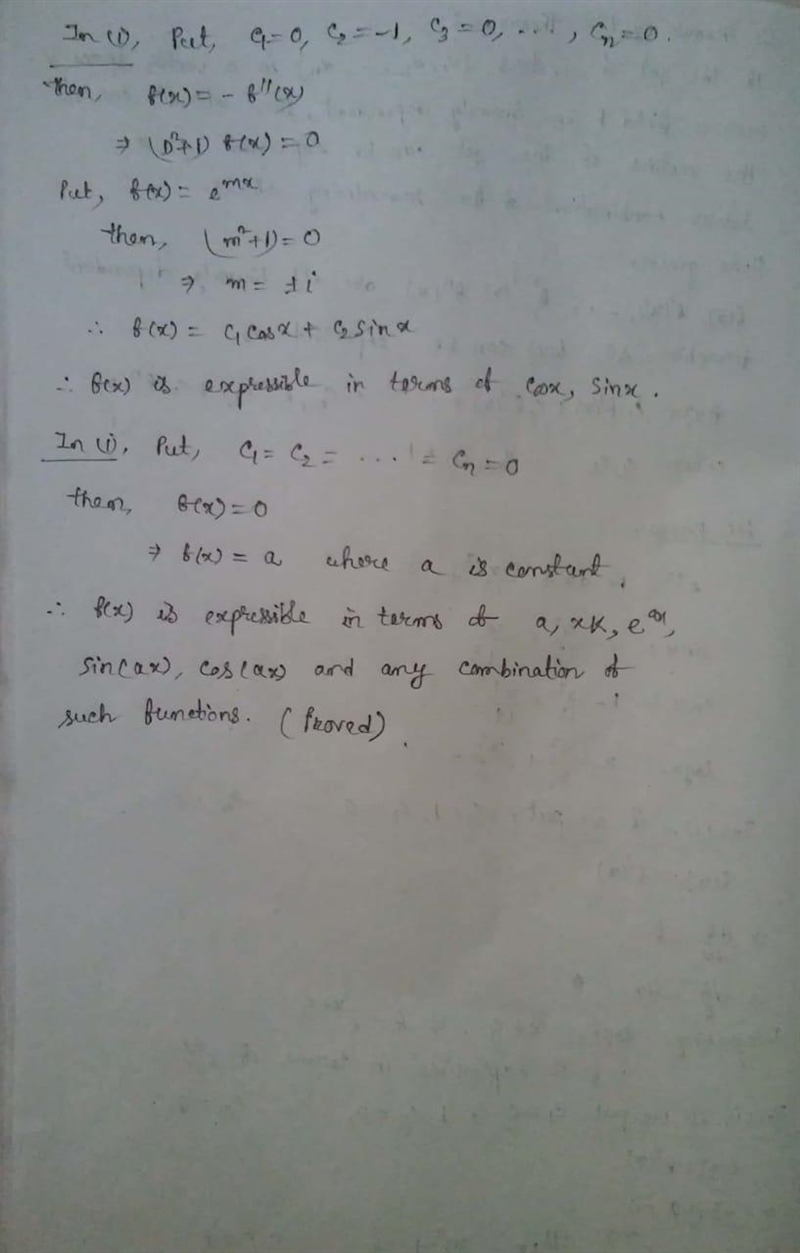 In (1), Put, C₁=0, C₂=-1, C₃=0, ...., Cₙ=0.
then, f(x)= - f''(x)
⇒ (D²+1) f(x)=0
Put, f(x)= e^{mx}
then, (m²+1)=0
⇒ m= ±i
∴ f(x)= C₁cosx + C₂sinx
∴ f(x) is expressible in terms of cosx, sinx.
In (1), Put, C₁= C₂= ....= Cₙ=0
then, f(x)=0
⇒ f(x)= a where a is constant.
∴ f(x) is expressible in terms of a, xk, e^{ax},
sin(ax), cos(ax) and any combination of
such functions. (Proved).